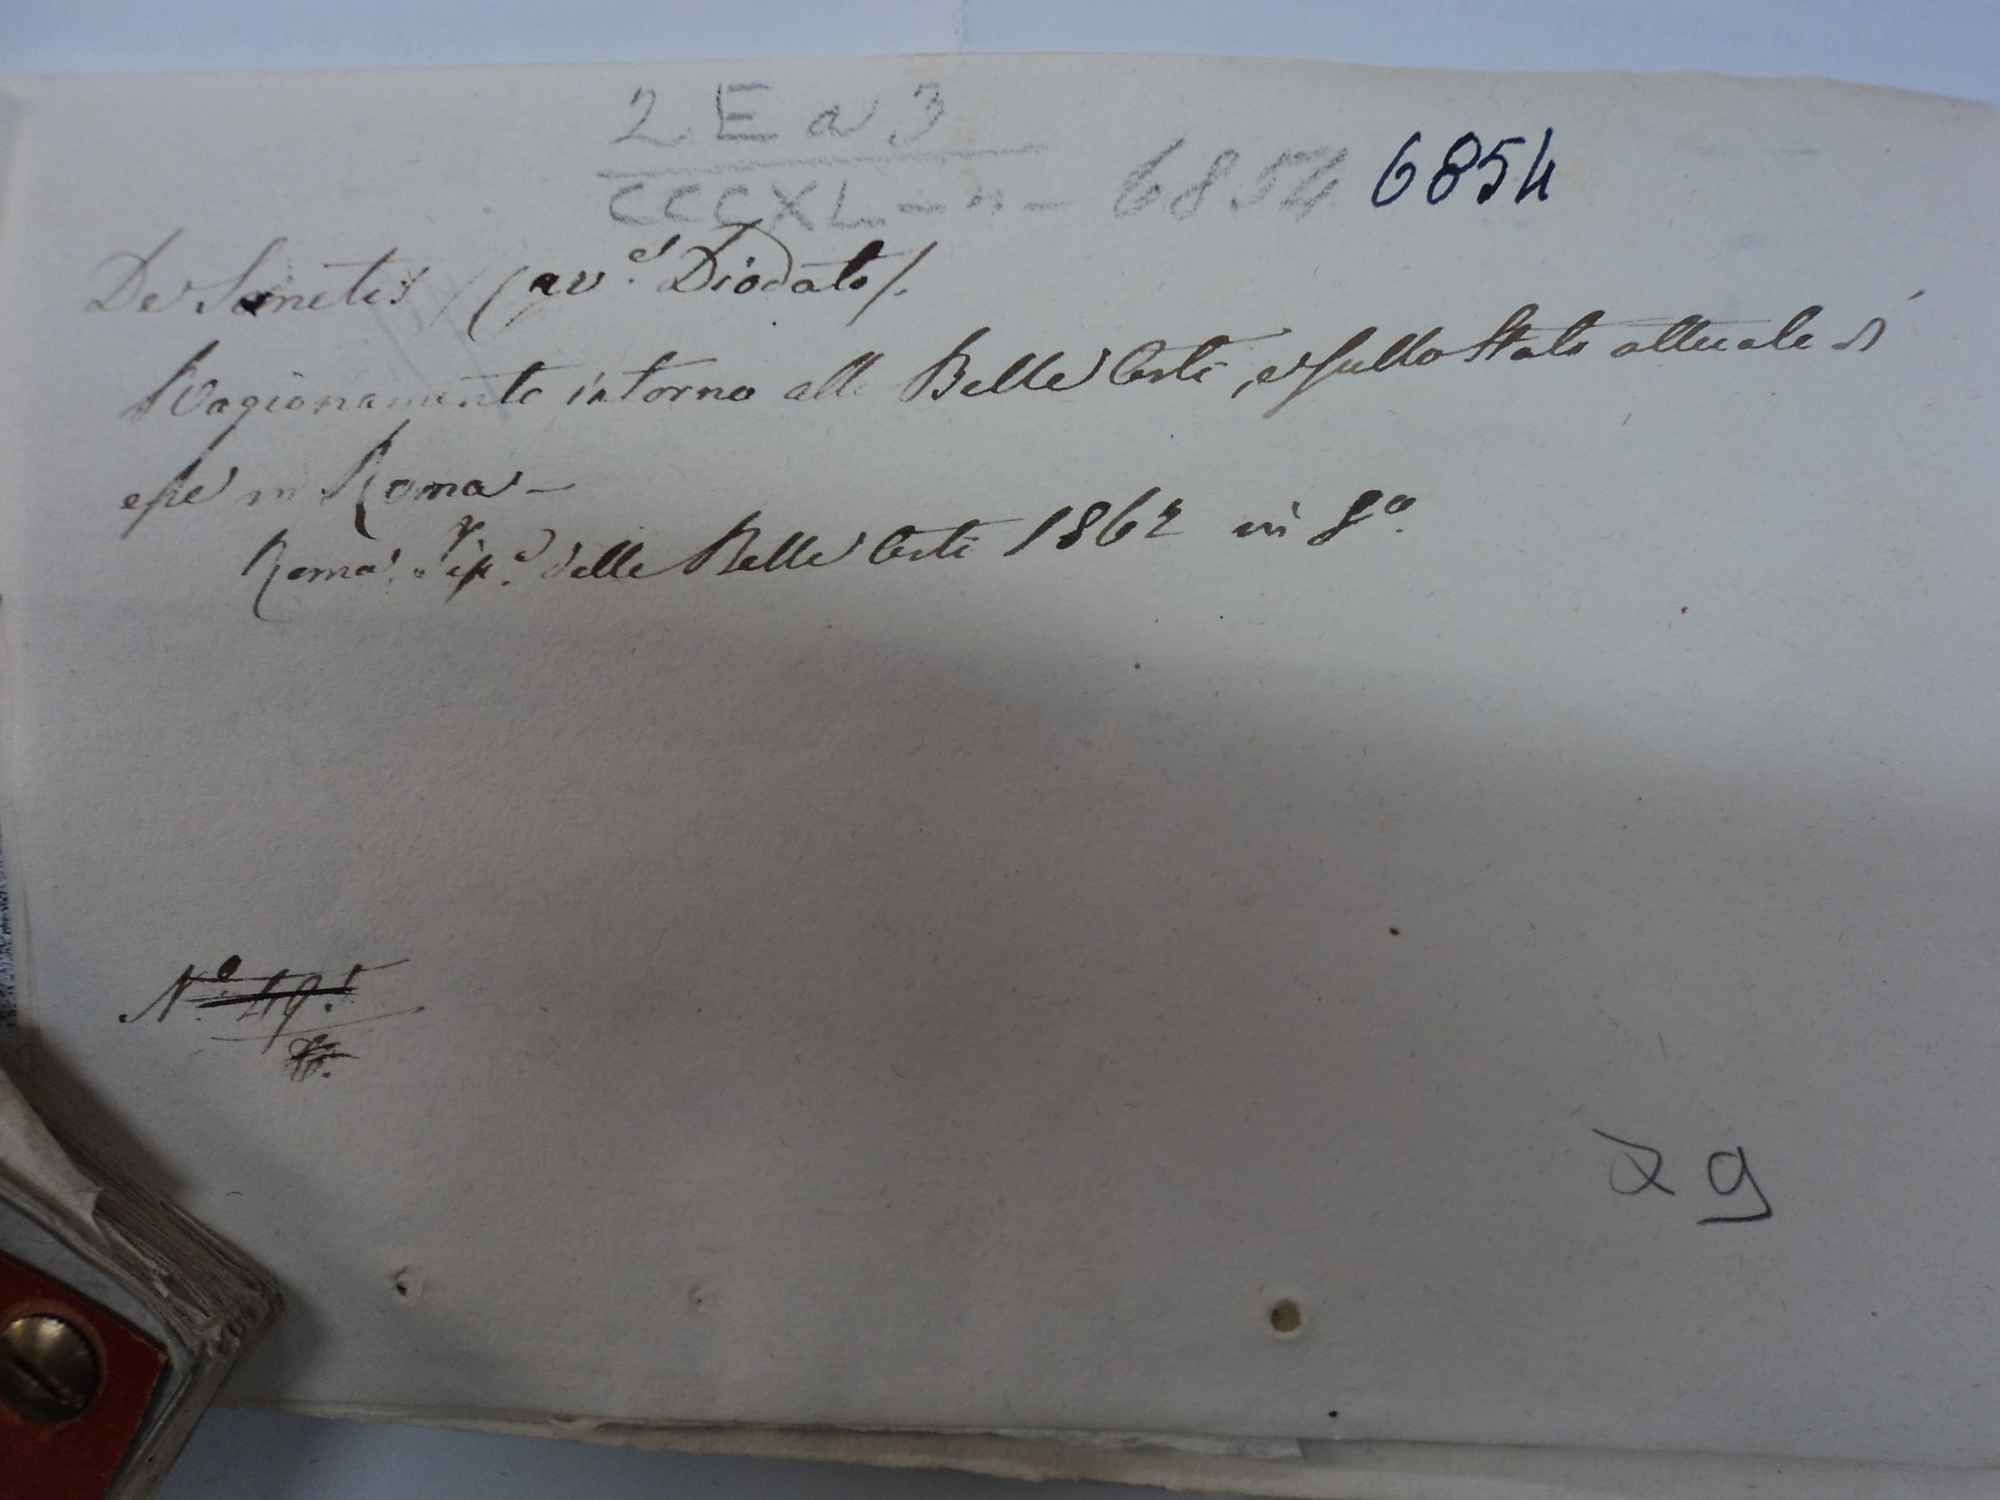 2 E a 3
CCCXL - n - 6854 6854
De Sanctis (av.e Diodato).
Ragionamento intorno alle Belle Arti, e sullo Stato attuale di
esse in Roma -
Roma. Tip.a delle Belle Arti 1862 in 8o.
No. 49.
29